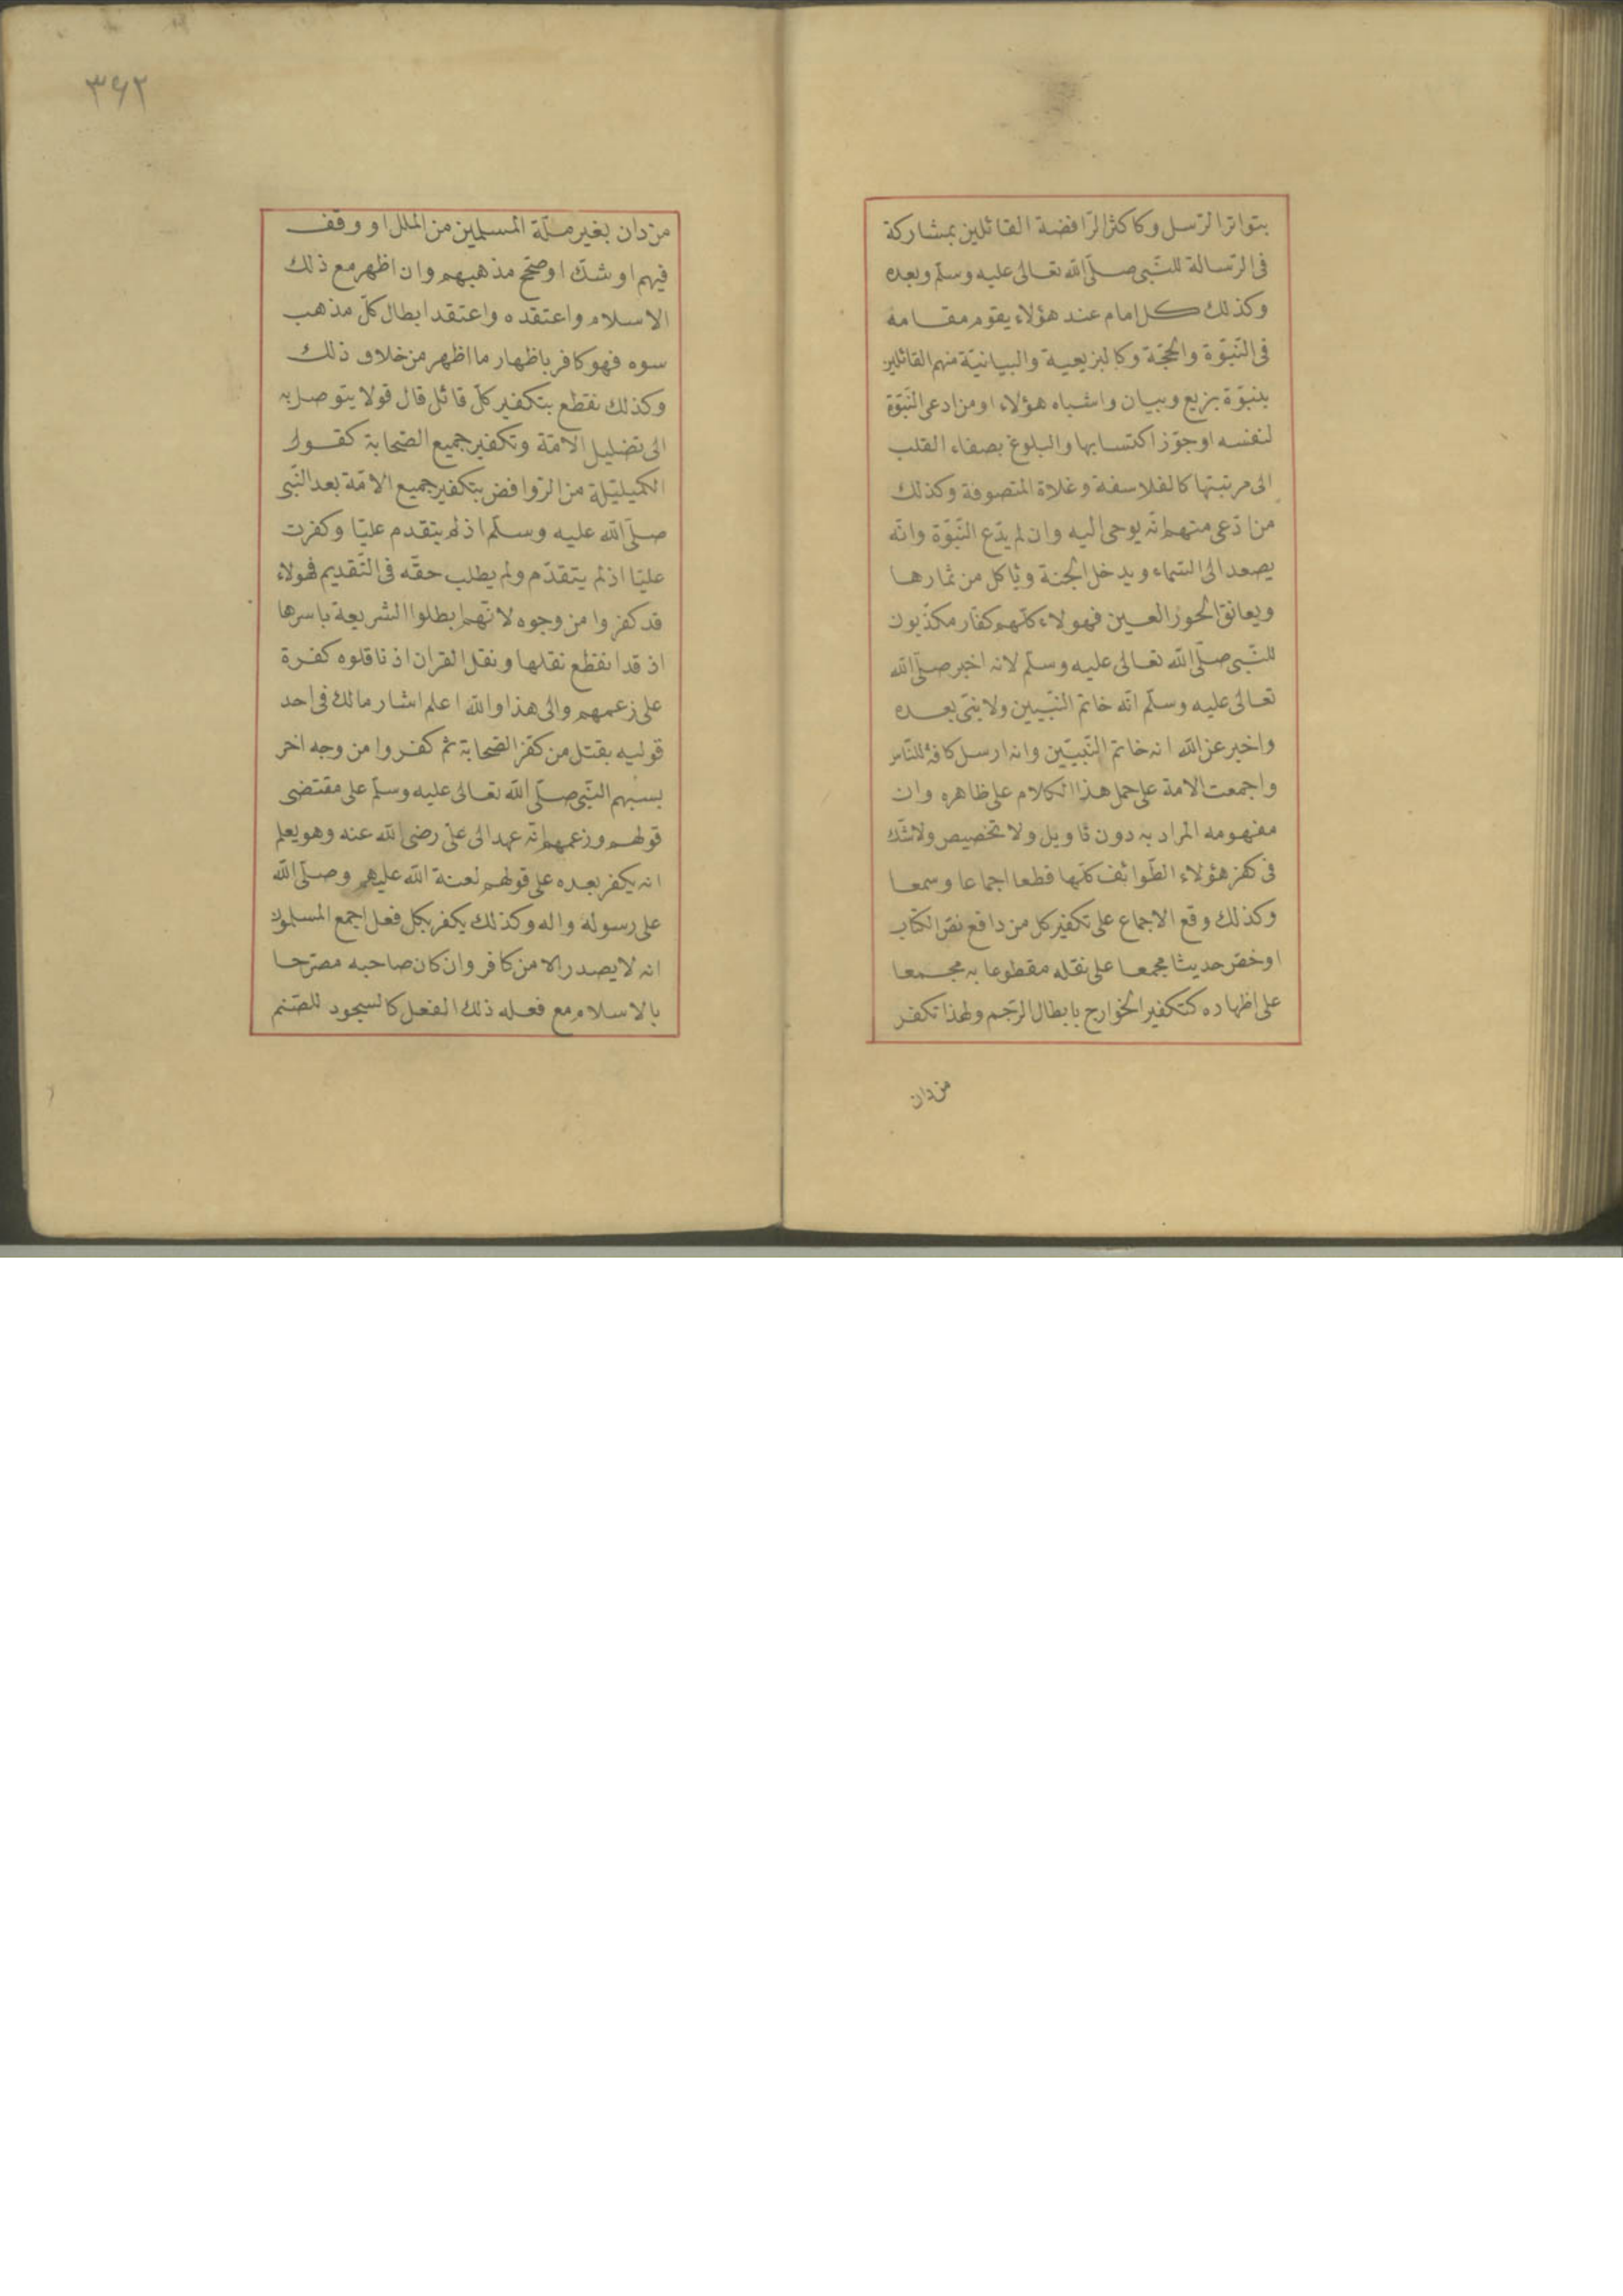 بتواتر الرّسل وكاكثر الرّافضة القائلين بمشاركة
فى الرّسالة للنّبى صلّى الله تعالى عليه وسلّم وبعده
وكذلك كل امام عند هؤلاء يقوم مقامه
فى النّبوّة والحجّة وكالبزيعية والبيانيّة منهم القائلين
بنبوّة بزيع وبيان واشباه هؤلاء اومن ادعى النّبوّة
لنفسه اوجوّز اكتسابها والبلوغ بصفاء القلب
الى مرتبتها كالفلاسفة وغلاة المتصوفة وكذلك
من ادّعى منهم انّه يوحى اليه وان لم يدّع النّبوّة وانّه
يصعد الى السّماء ويدخل الجنة وياكل من ثمارها
ويعانق الحور العين فهولاء كلّهم كفّار مكذّبون
للنّبى صلّى الله تعالى عليه وسلّم لانه اخبر صلّى الله
تعالى عليه وسلّم انّه خاتم النّبيين ولا نبى بعده
واخبر عن الله انه خاتم النّبيّين وانه ارسل كافة للنّاس
واجمعت الامة على حمل هذا الكلام على ظاهره وان
مفهومه المراد به دون تاويل ولا تخصيص ولا شّك
فى كفر هؤلاء الطّوائف كلّها قطعا اجماعا وسمعا
وكذلك وقع الاجماع على تكفير كل من دافع نصّ الكتاب
اوخصّ حديثا مجمعا على نقله مقطوعا به مجمعا
على اظهاره كتكفير الخوارج بابطال الرّجم ولهذا تكفر
من دان
٣٦٢
من دان بغير ملّة المسلمين من الملل او وقف
فيهم او شكّ اوصحّح مذهبهم وان اظهر مع ذلك
الاسلام واعتقده واعتقد ابطال كلّ مذهب
سوه فهو كافر باظهار ما اظهر من خلاف ذلك
وكذلك نقطع بتكفير كلّ قائل قال قولا يتوصل به
الى تضليل الامّة وتكفير جميع الصّحابة كقول
الكميليّة من الرّوافض بتكفير جميع الامّة بعد النّبى
صلّى الله عليه وسلّم اذ لم يتقدم عليّا وكفرت
عليّا اذ لم يتقدّم ولم يطلب حقّه فى التّقديم فهولاء
قد كفروا من وجوه لانّهم ابطلوا الشريعة باسرها
اذ قد انقطع نقلها ونقل القران اذ ناقلوه كفرة
على زعمهم والى هذا والله اعلم اشار مالك فى احد
قوليه بقتل من كفّر الصّحابة ثم كفروا من وجه اخر
بسبّهم النّبى صلّى الله تعالى عليه وسلّم على مقتضى
قولهم وزعمهم انّه عهد الى علىّ رضى الله عنه وهو يعلم
انه يكفر بعده على قولهم لعنة الله عليهم وصلّى الله
على رسوله واله وكذلك يكفر بكل فعل اجمع المسلمون
انه لا يصدر الا من كافر وان كان صاحبه مصرّحا
بالاسلام مع فعله ذلك الفعل كالسجود للصّنم